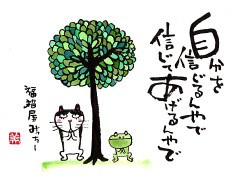 自分を
信じるんやで
信じて
あげるんやで
福猫屋みぃー